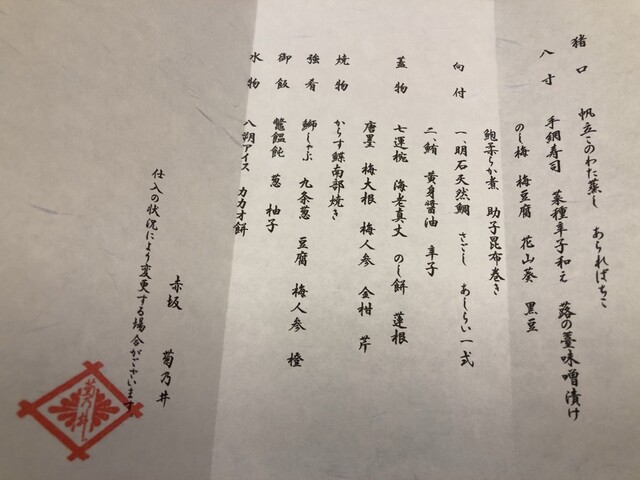 猪口　帆立このわた蒸し　あらればちこ
八寸　手綱寿司　菜種辛子和え　蕗の薹味噌漬け
のし梅　梅豆腐　花山葵　黒豆
鮑柔らか煮　助子昆布巻き
向付　一、明石天然鯛　さごし　あしらい一式
二、鮪　黄身醤油　辛子
蓋物　七運椀　海老真丈　のし餅　蓮根
唐墨　梅大根　梅人参　金柑　芹
焼物　からす鰈南部焼き
強肴　鰤しゃぶ　九条葱　豆腐　梅人参　橙
御飯　鼈饂飩　葱　柚子
水物　八朔アイス　カカオ餅
仕入の状況により変更する場合がございます
赤坂　菊乃井
菊乃井